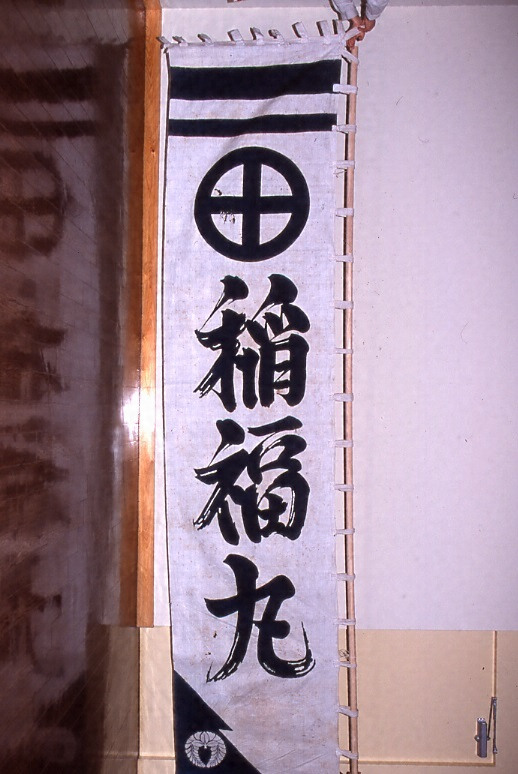 稲福丸